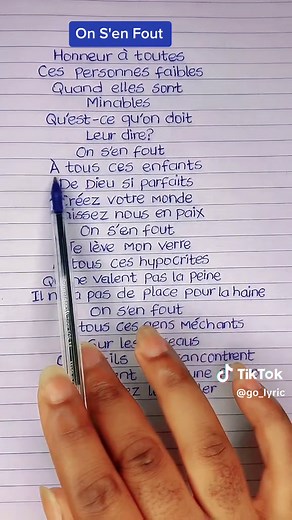 On S'en Fout
Honneur à toutes
Ces personnes faibles
Quand elles sont
Minables
Qu'est-ce qu'on doit
Leur dire?
On s'en fout
À tous ces enfants
De Dieu si parfaits
Créez votre monde
laissez nous en paix
On s'en fout
Je lève mon verre
tous ces hypocrites
valent pas la peine
Il n'y a pas de place pour la haine
On s'en fout
tous ces gens méchants
sur les
ils
TikTok
@go_lyric